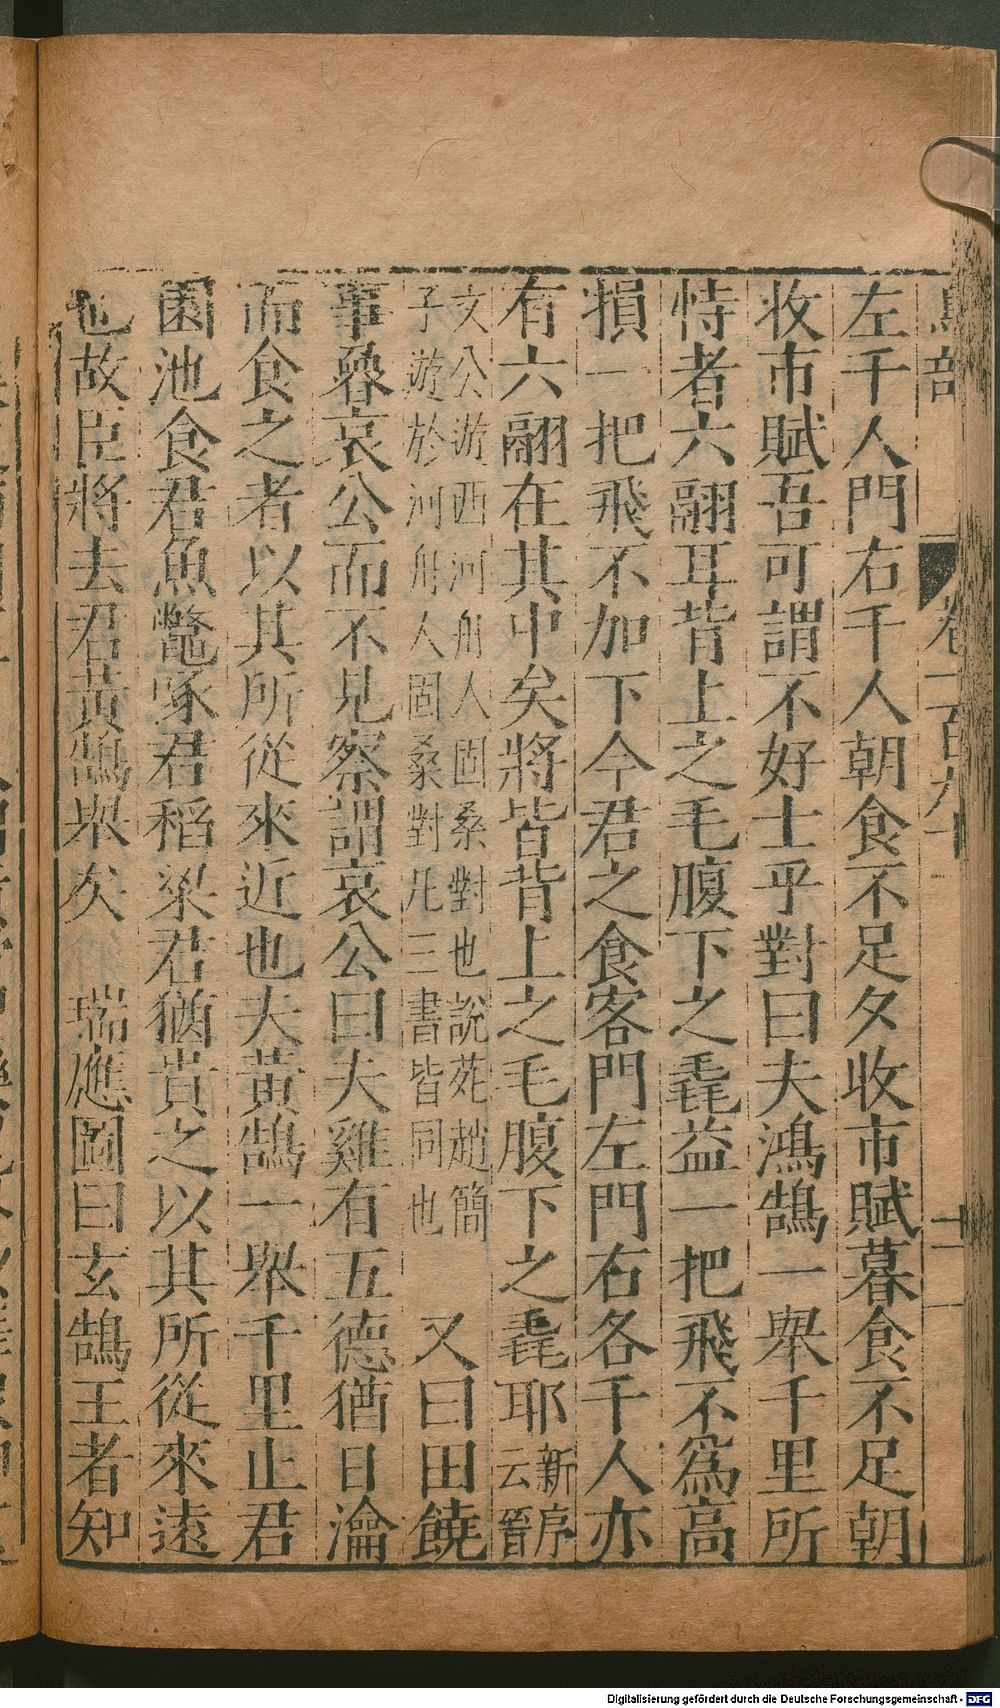 鳥部 卷一百九十 十二
左千人門右千人朝食不足夕收市賦暮食不足朝
收市賦吾可謂不好士乎對曰夫鴻鵠一舉千里所
恃者六翮耳背上之毛腹下之毳益一把飛不為高
損一把飛不加下今君之食客門左門右各千人亦
有六翮在其中矣將皆背上之毛腹下之毳耶新序
云晉
文公游西河舟人固桑對也說苑趙簡
子游於河舟人固桑對凡三書皆同也
又曰田饒
事魯哀公而不見察謂哀公曰夫雞有五德猶日瀹
而食之者以其所從來近也夫黃鵠一舉千里止君
園池食君魚鼈啄君稻粱君猶貴之以其所從來遠
也故臣將去君黃鵠舉矣 瑞應圖曰玄鵠王者知
Digitalisierung gefördert durch die Deutsche Forschungsgemeinschaft - DFG